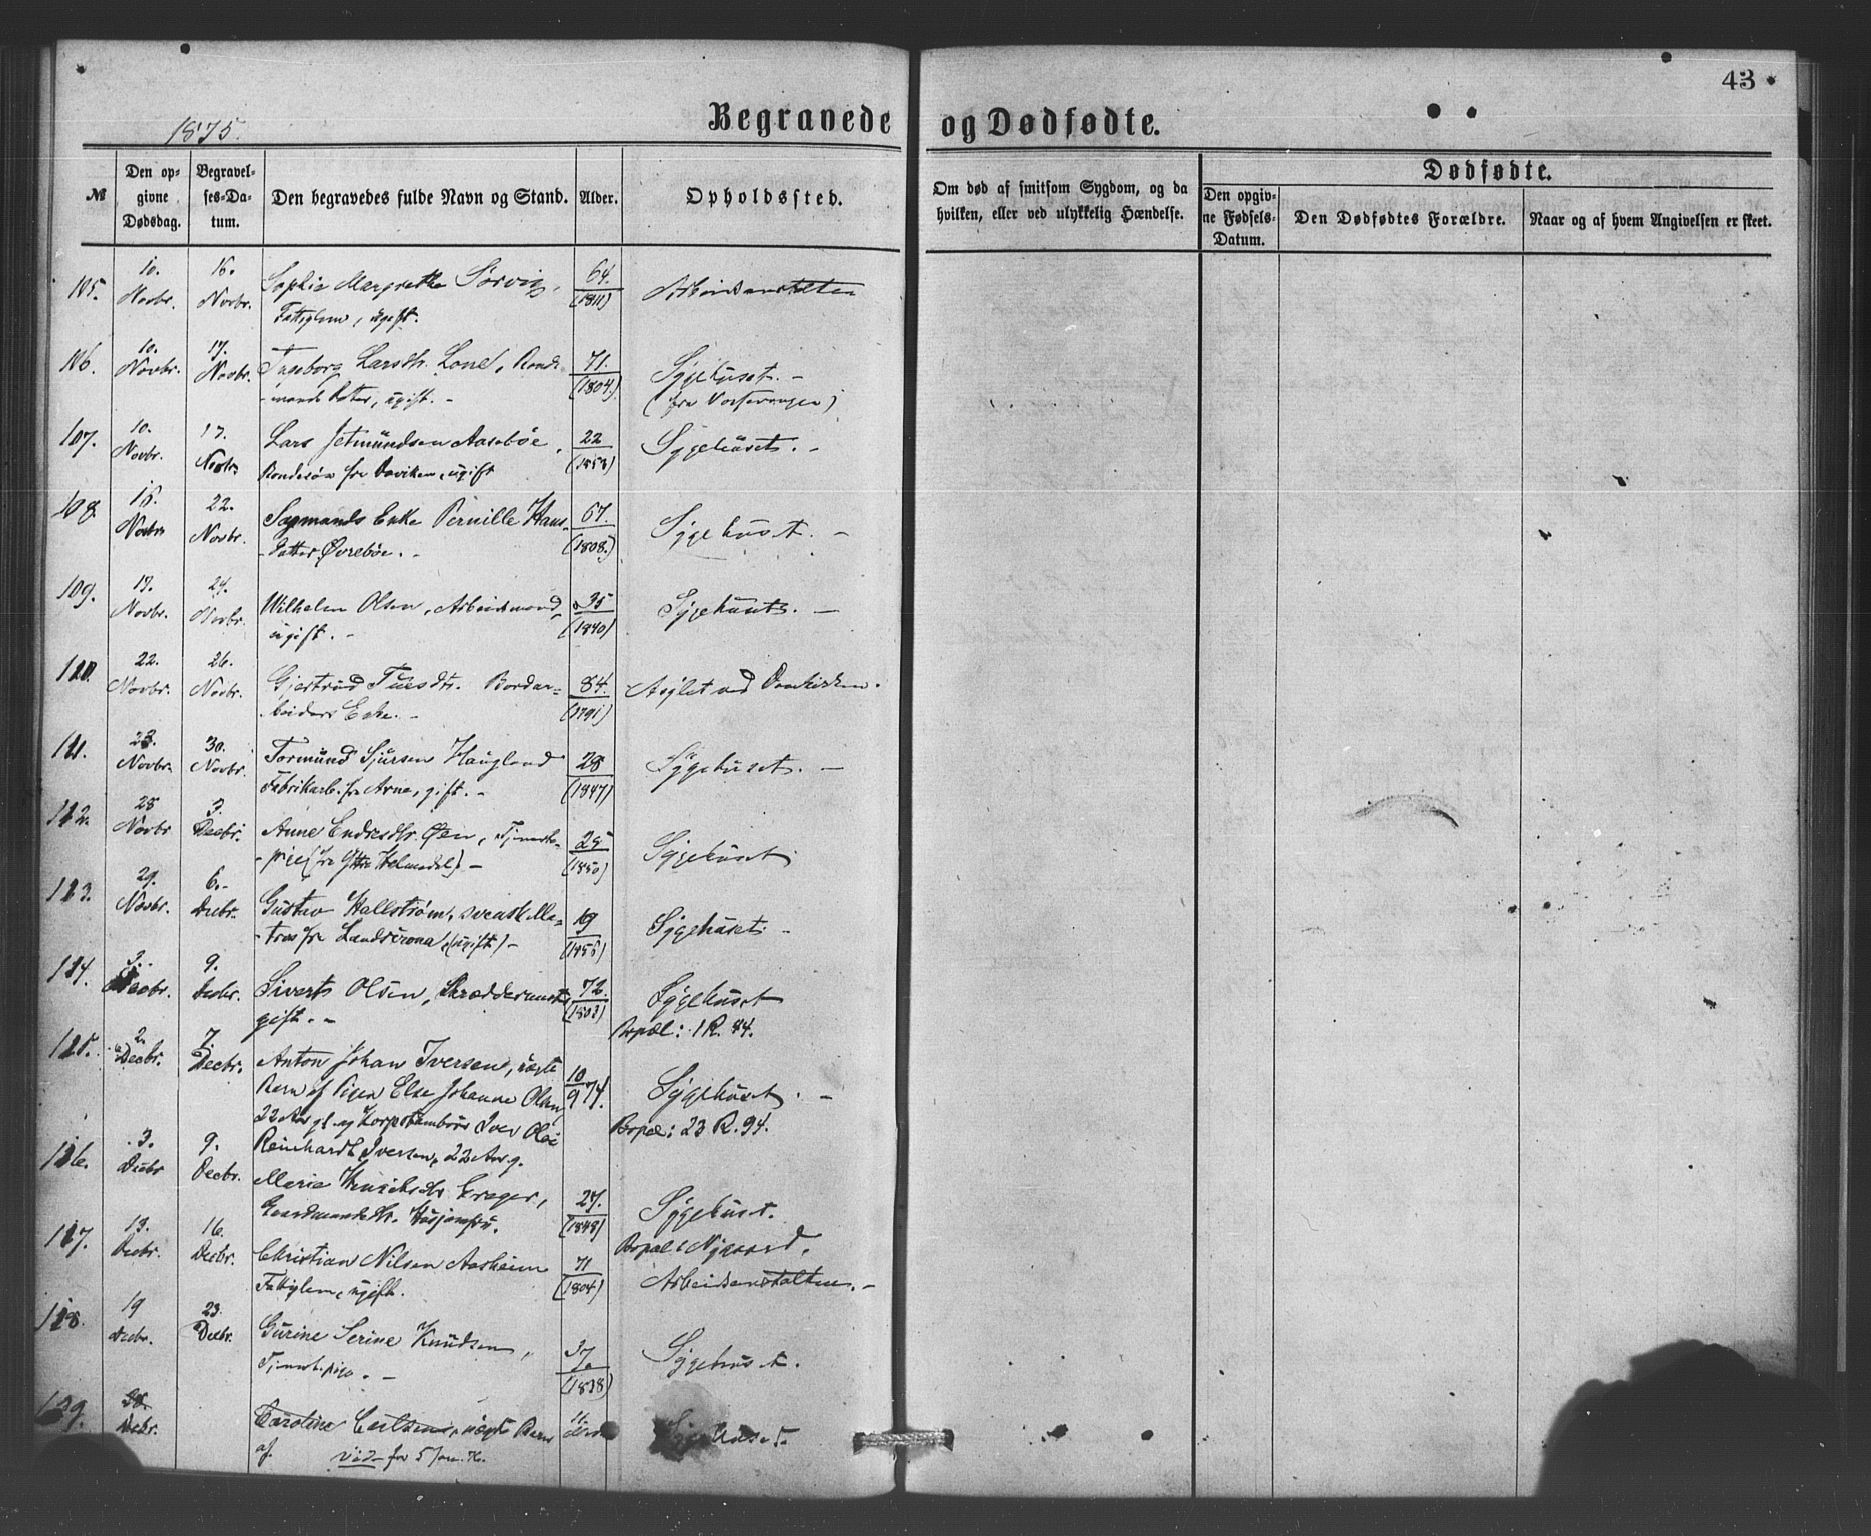 43
1875.
Begravede og Dødfødte.
№
Den opgivne Dødsdag.
Begravelses-Datum.
Den begravedes fulde Navn og Stand.
Alder.
Opholdssted.
Om død af smitsom Sygdom, og da hvilken, eller ved ulykkelig Hændelse.
Dødfødte.
Den opgivne Fødsels-Datum.
Den Dødfødtes Forældre.
Naar og af hvem Angivelsen er skeet.
105. 10. Novbr. 16. Novbr. Sophie Margrethe Sørvig, 64. (1811) Arbeidsanstalten
Fattiglem, ugift.
106. 10. Novbr. 17. Novbr. Ingeborg Larsdtr. Lone, Bonde- 71. (1804) Sygehuset. -
mands Datter, ugift. - (fra Vossevangen)
107. 10. Novbr. 17. Novbr. Lars Jetmundsen Aasebøe, 22 (1853) Sygehuset. -
Bondesøn fra Daviken, ugift
108. 16. Novbr 22. Novbr. Sagmands Enke Pernille Hans- 67. (1808.) Sygehuset. -
-datter Øvrebøe. -
109. 17. Novbr. 24. Novbr. Wilhelm Olsen, Arbeidsmand, 35 (1840) Sygehuset. -
ugift. -
110. 22. Novbr. 26. Novbr. Gjertrud Tuesdtr. Bordar- 84. (1791) Asylet ved Domkirken.
beiders Enke. -
111. 23. Novbr. 30. Novbr. Tormund Sjursen Haugland 28 (1847) Sygehuset. -
Fabrikarb. fra Arne, gift. -
112. 28 Novbr 3. Decbr. Anne Endresdtr. Øen, Tjeneste- 25 (1850) Sygehuset
-pige (fra Yttre Holmedal) -
113. 29. Novbr. 6. - Decbr. Gustav Hallstrøm, svensk Ma- 19 (1856) Sygehuset. -
-tros fra Landscrona, (ugift) -
114. 3. Decbr. 9. Decbr. Siverts Olsen, Skræddermest. 72. (1803) Sygehuset
gift. - Bopæl: 1 R. 44.
115. 2. Decbr. 7. Decbr. Anton Johan Iversen, uægte 10/9 74. Sygehuset. -
Barn af Pigen Else Johanne Olsen, Bopæl: 23 R. 94.
22 Aar gl. og Korpstambour Iver Olai
Reinhardt Iversen, 22 Aar g.
116. 3. Decbr 9. Decbr. Marie Kreger, 27. (1848) Sygehuset.
Gaardmandsdtr. Bopæl: Nygaard.
117. 13. Decbr. 16. Decbr. Christian Nilsen Aasheim 71 (1804) Arbeidsanstalten. -
Fattiglem, ugift.
118. 19 Decbr. 23. Decbr. Gurine Serine Knudsen, 37. (1838) Sygehuset.
Tjenestepige. -
119. Decbr. Caroline Carlsen, uægte Barn Sygehuset.
af. vid- for 5 Jan. 76.